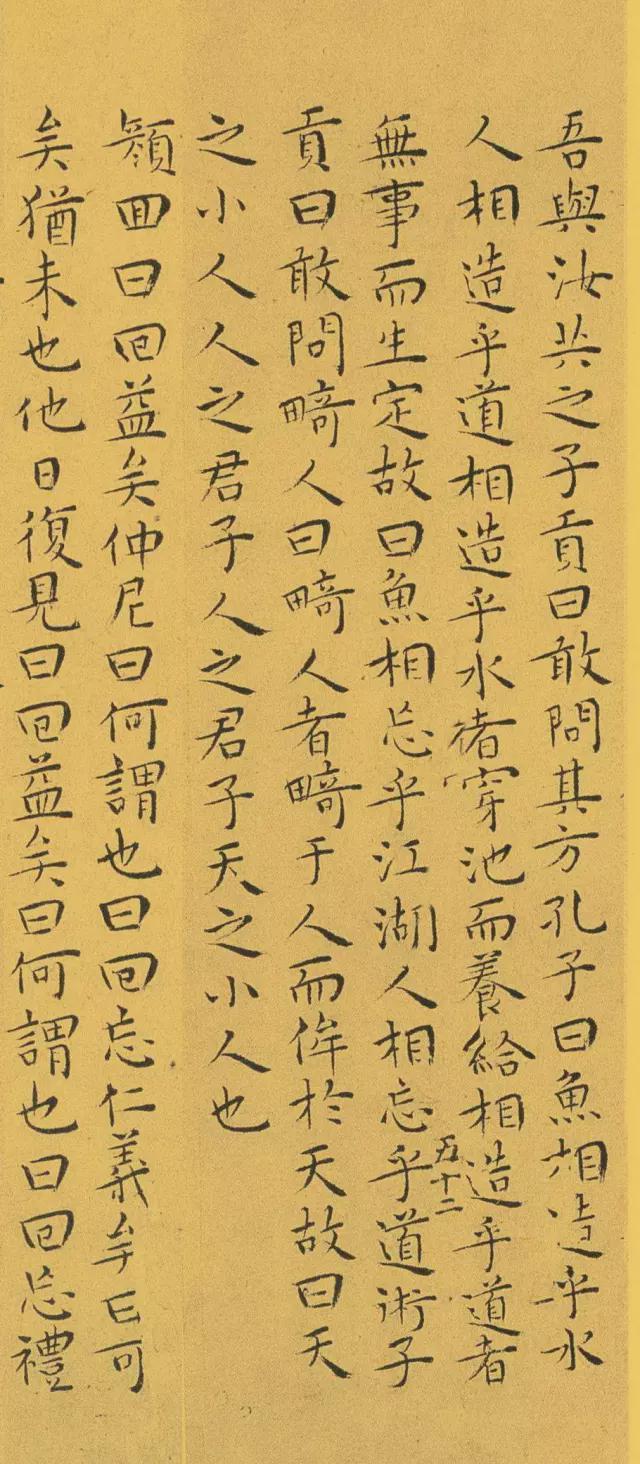 吾與汝共之子貢曰敢問其方孔子曰魚相造乎水
人相造乎道相造乎水者穿池而養給相造乎道者
五十二
無事而生定故曰魚相忘乎江湖人相忘乎道術子
貢曰敢問畸人曰畸人者畸于人而侔於天故曰天
之小人人之君子人之君子天之小人也
顏回曰回益矣仲尼曰何謂也曰回忘仁義矣曰可
矣猶未也他日復見曰回益矣曰何謂也曰回忘禮